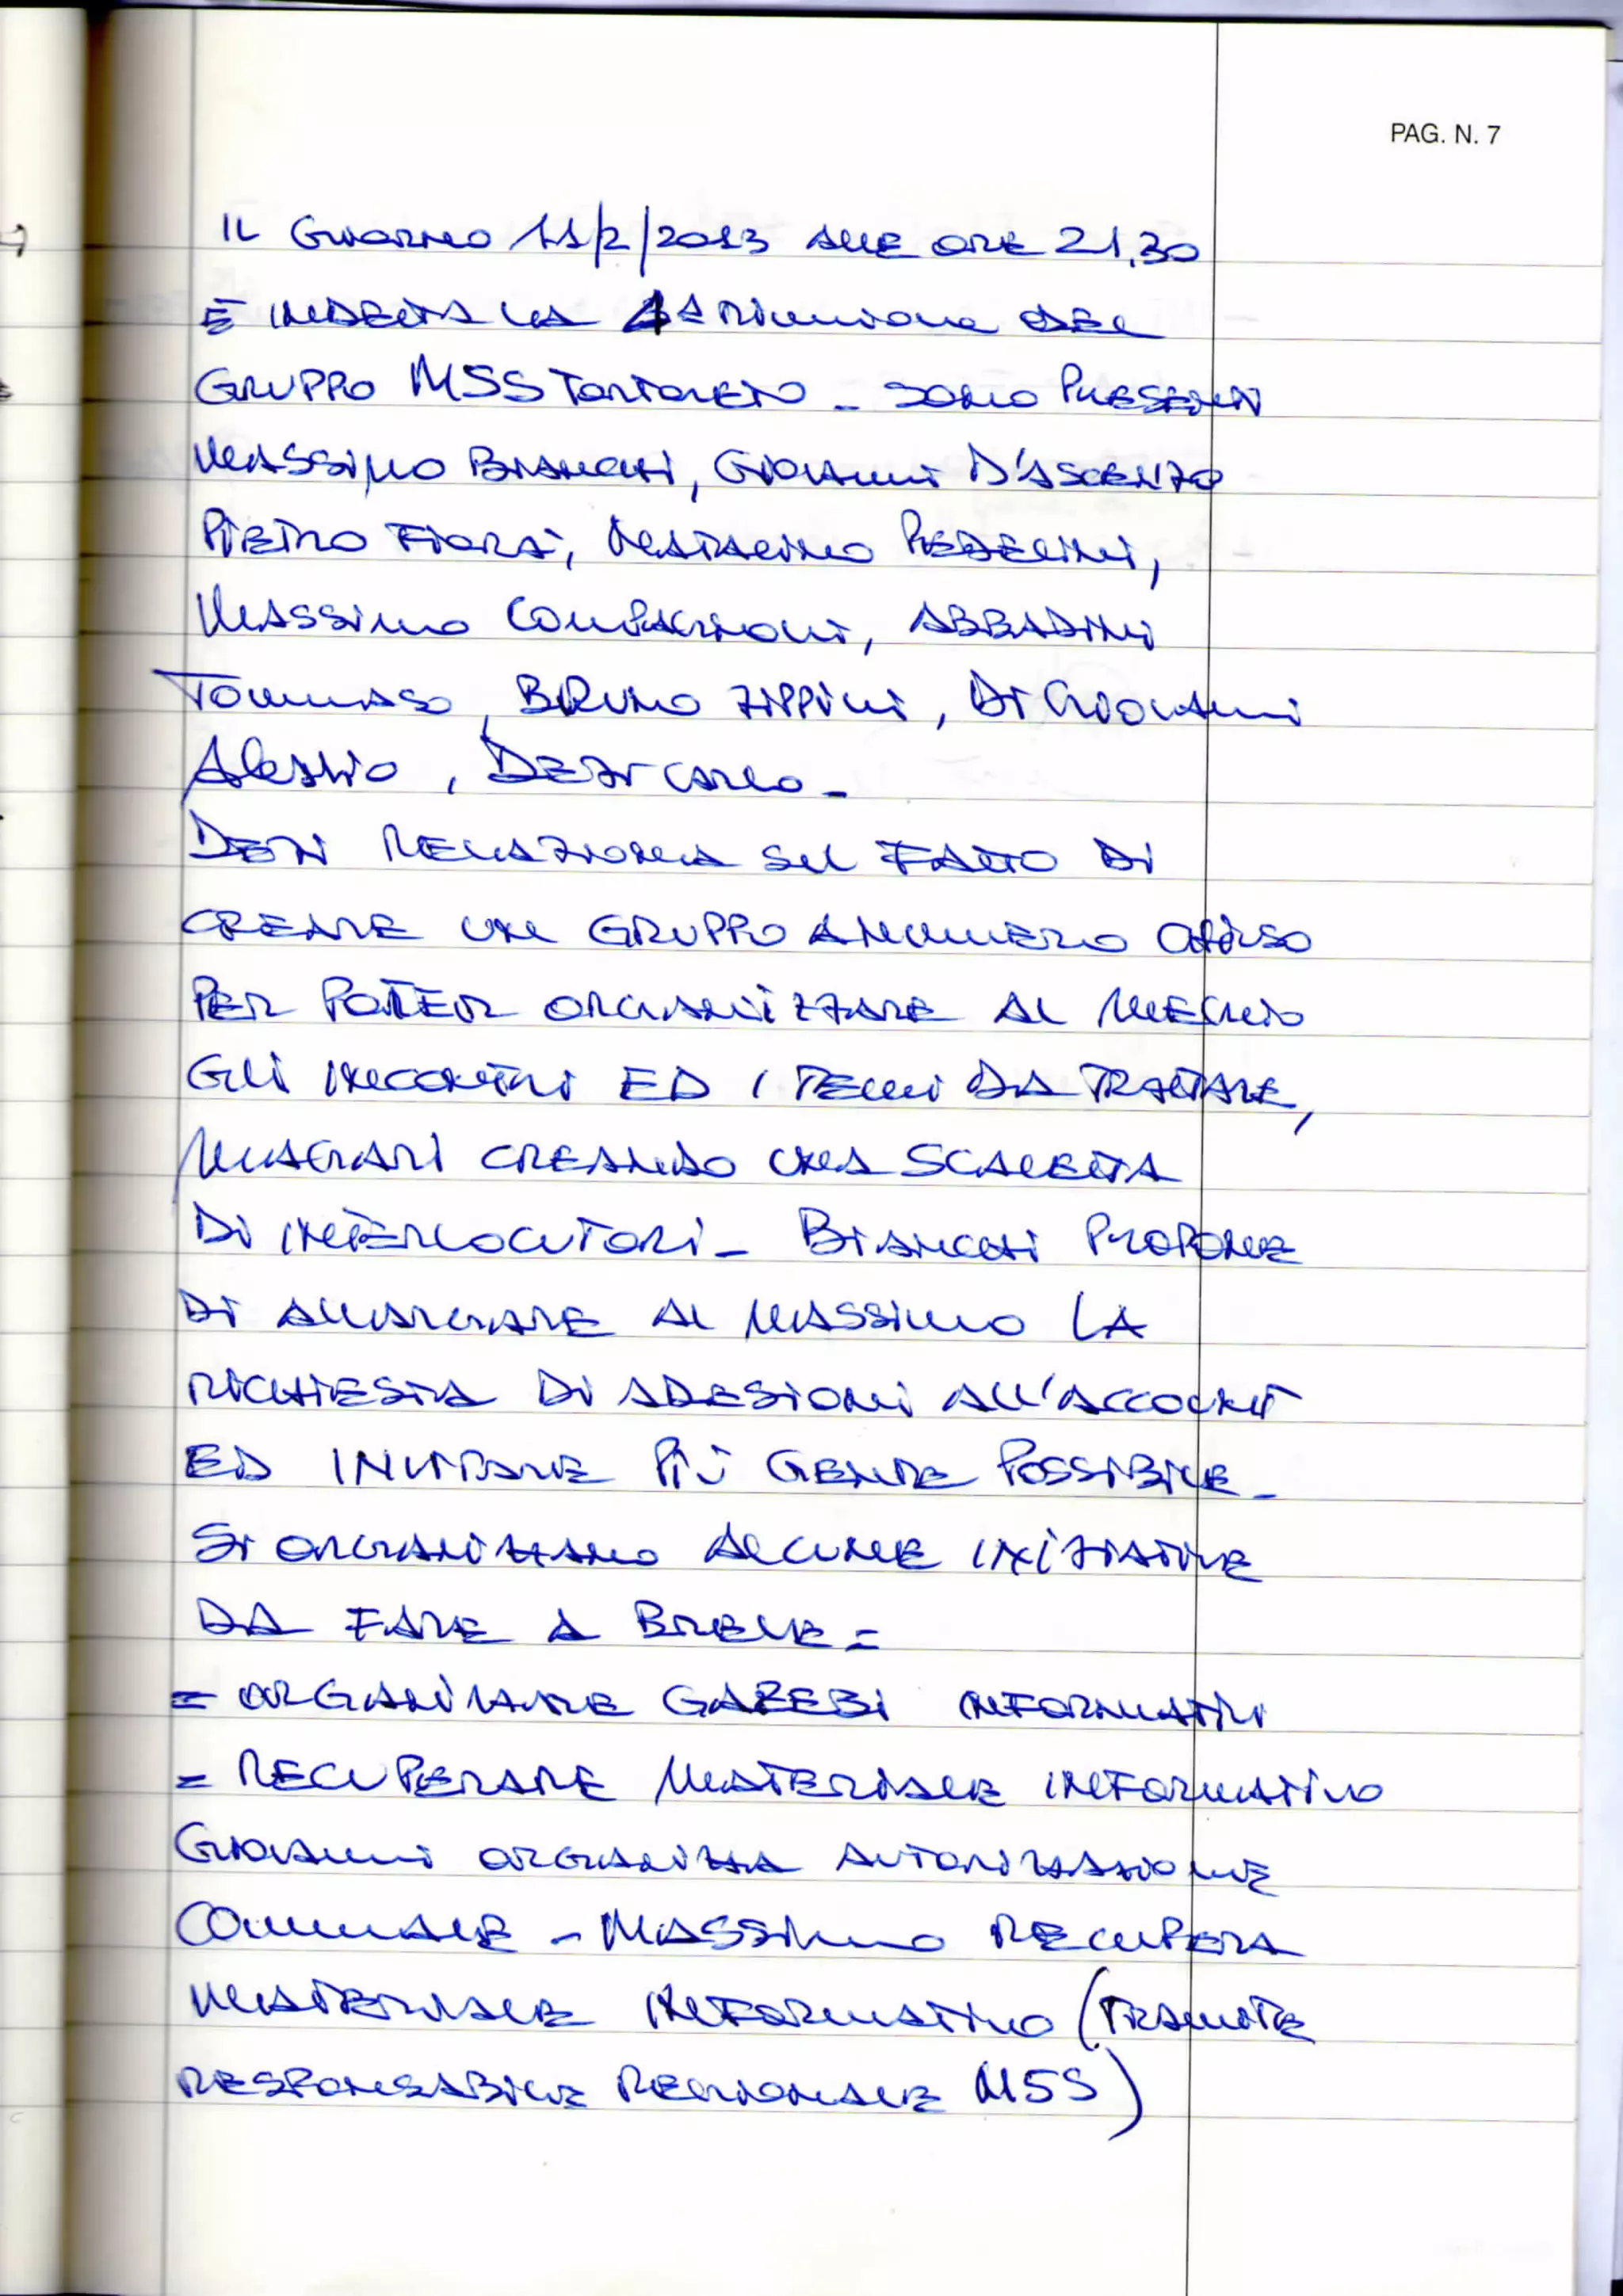 PAG. N. 7
IL GIORNO 11/2/2013 ALLE ORE 21,30
È INDETTA LA 1ª Riunione DEL
GRUPPO M5S TORTORETO - SONO PRESENTI
MASSIMO BIANCHI, GIOVANNI D'ASCENZO
PIETRO FIORA', PEDELINI,
MASSIMO COMPAGNONI, ABBADINI
TOMMASO, BRUNO ZIPPINI, DI GIOVANNI
Alessio, DEZI CARLO -
DEZI RELAZIONA SUL FATTO DI
CREARE UN GRUPPO A NUMERO
PER POTER ORGANIZZARE AL MEGLIO
GLI INCONTRI ED I TEMI DA TRATTARE,
MAGARI CREANDO UNA SCALETTA
DI INTERLOCUTORI - BIANCHI PROPONE
DI ALLARGARE AL MASSIMO LA
RICHIESTA DI ADESIONI ALL'ACCOUNT
ED INVITARE PIÙ GENTE POSSIBILE -
SI ORGANIZZANO ALCUNE INIZIATIVE
DA FARE A BREVE =
= ORGANIZZARE GAZEBI INFORMATIVI
= RECUPERARE MATERIALE INFORMATIVO
GIOVANNI ORGANIZZA AUTORIZZAZIONE
COMUNALE - MASSIMO RECUPERA
MATERIALE INFORMATIVO (TRAMITE
RESPONSABILE REGIONALE M5S)